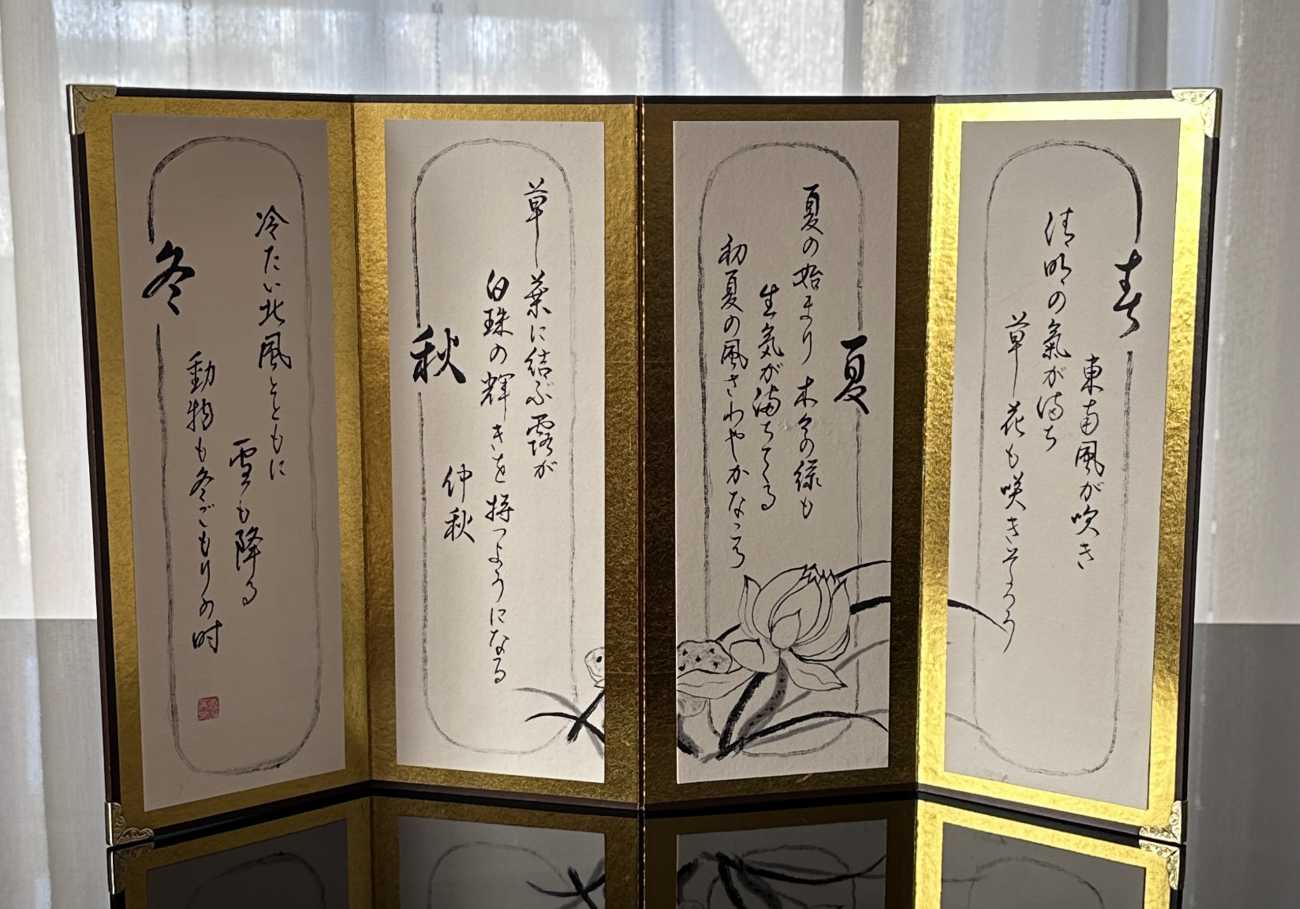 春
東南風が吹き
清明の氣が満ち
草花も咲きそろう
夏
夏の始まり 木々の緑も
生気が満ちてる
初夏の風さわやかなころ
草葉に結ぶ露が
白珠の輝きを持つようになる
仲秋
秋
冷たい北風とともに
雪も降る
動物も冬ごもりの時
冬